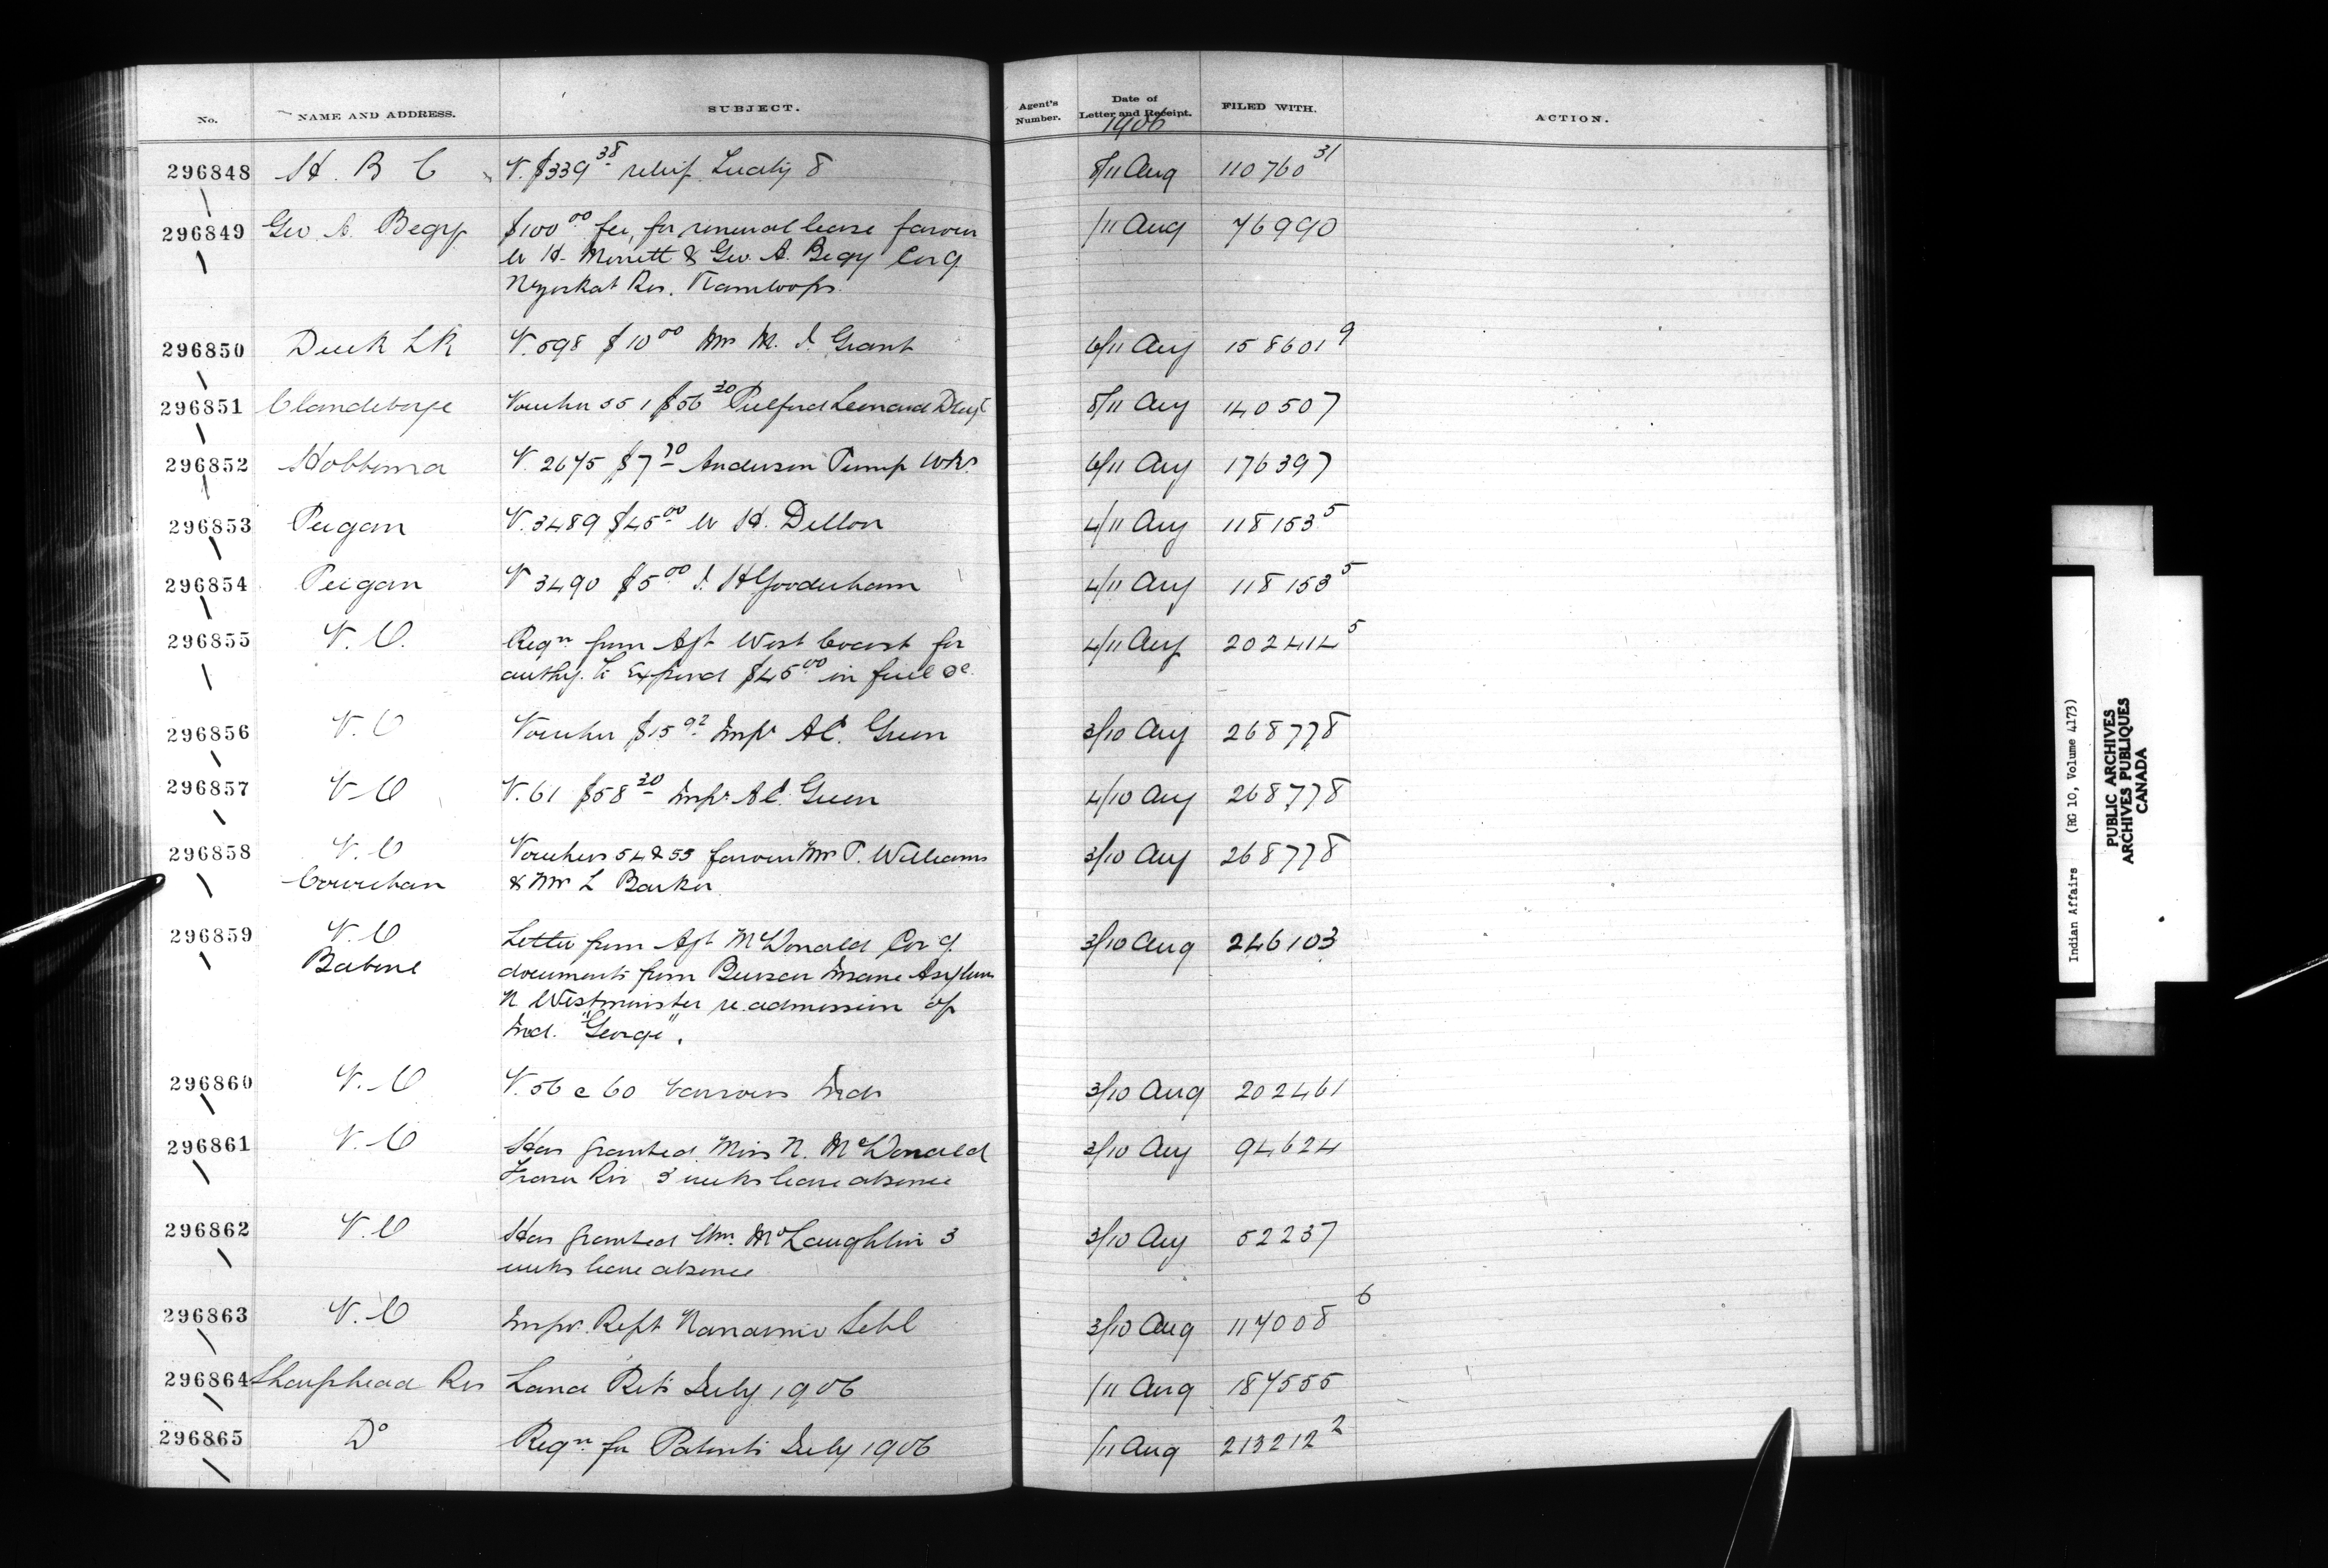 No. NAME AND ADDRESS. SUBJECT. Agent's Number. Date of Letter and Receipt. FILED WITH. ACTION.
1906
296848 H. B C V. $339 38 relief Treaty 8 8/11 Aug 110760 31
296849 Geo A. Begy $100 00 fee, for renewal lease favour 1/11 Aug 76990
W H. Merritt & Geo. A. Begy Cov g
Res. Kamloops.
296850 Duck LK V. 598 $10 00 Mr M. J. Grant 6/11 Aug 158601 9
296851 Clandeboye Voucher 551 $56 20 Pulford Leonard Drug 8/11 Aug 140507
296852 Hobbema V. 2675 $7 70 Anderson Pump Wks. 6/11 Aug 176397
296853 Peigan V. 3489 $45 00 W H. Dillon 4/11 Aug 118153 5
296854 Peigan V 3490 $5 00 J. H Gooderham 4/11 Aug 118153 5
296855 V. O. Reqn from Agt West Coast for 4/11 Aug 202414 5
authy. to Expend $45 00 in fuel &c.
296856 V. O Voucher $15 92 Insp A E. Green 3/10 Aug 268778
296857 V O V. 61 $58 20 Insp. A E. Green 4/10 Aug 268778
296858 V. O Vouchers 54 & 55 favour Mr P. Williams 3/10 Aug 268778
Cowichan & Mr L Barker.
296859 V. O Letter from Agt McDonald Cov g 3/10 Aug 246103
Babine documents from Bursar Insane Asylum
N Westminster re admission of
Ind. "George".
296860 V. O V. 56 @ 60 various Inds 3/10 Aug 202461
296861 V. O Has granted Miss N. McDonald 3/10 Aug 94624
Fraser Riv 3 weeks leave absence
296862 V. O Has granted Wm. McLaughlin 3 3/10 Aug 52237
weeks leave absence
296863 V. O Insp. Rept Nanaimo Schl 3/10 Aug 117008 6
296864 Sharphead Res Land Ret. July 1906 1/11 Aug 187555
296865 Do Reqn for Patents July 1906 1/11 Aug 213212 2
Indian Affairs (RG 10, Volume 4173)
PUBLIC ARCHIVES
ARCHIVES PUBLIQUES
CANADA